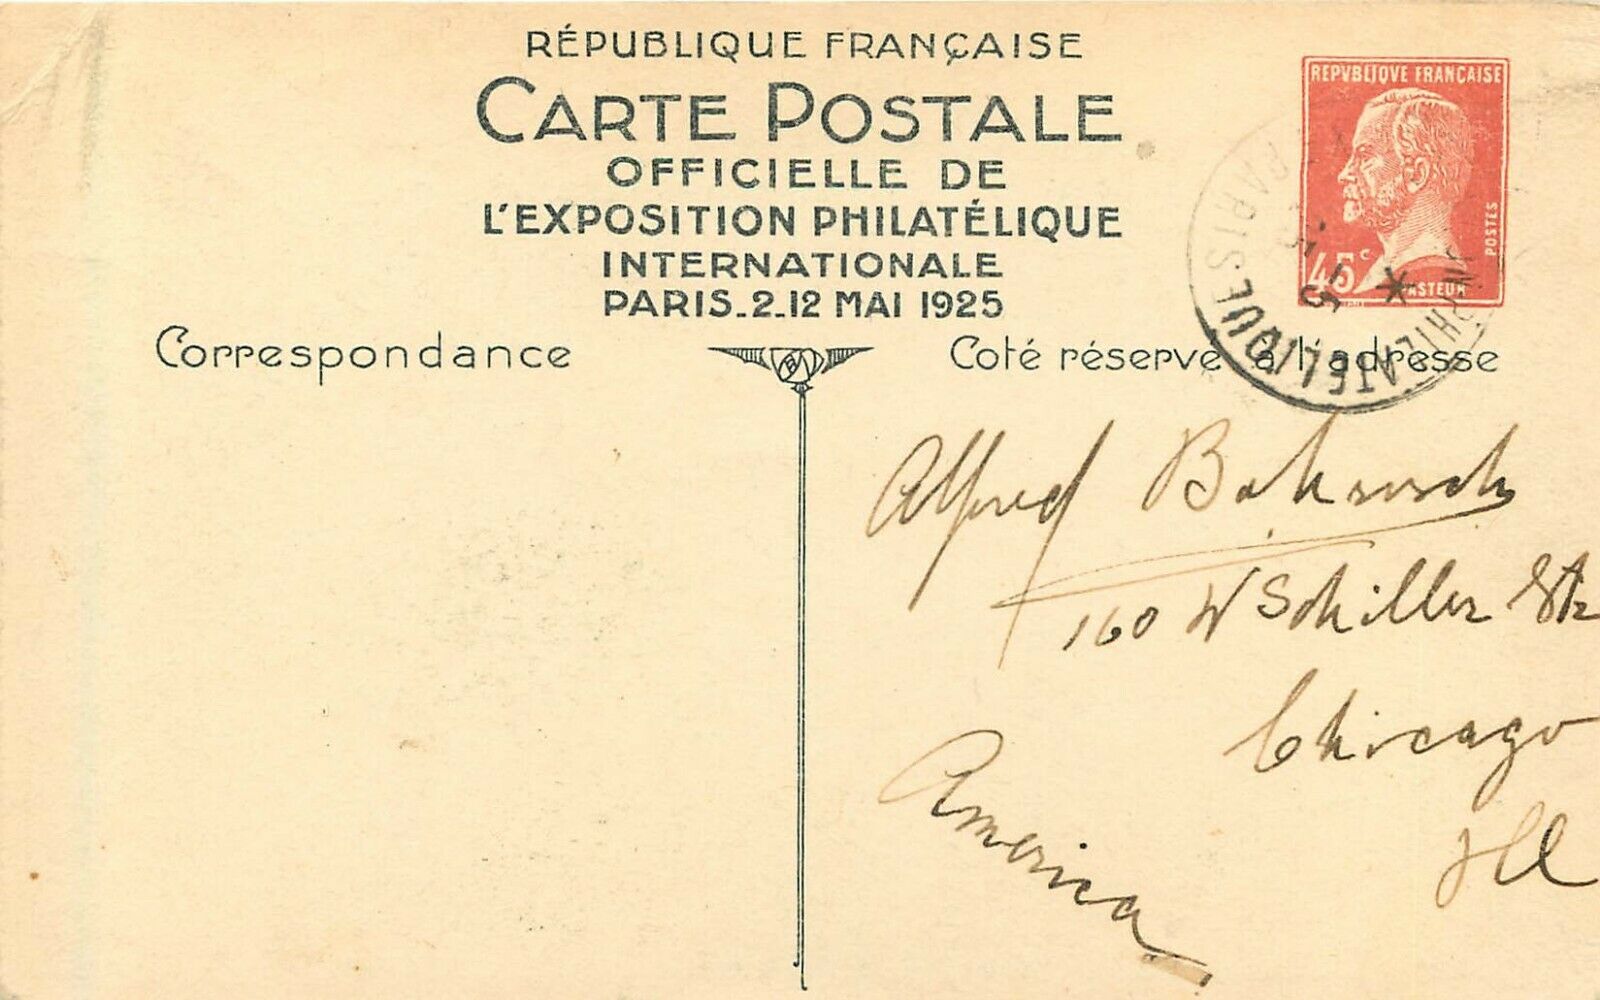 RÉPUBLIQUE FRANÇAISE
CARTE POSTALE
OFFICIELLE DE
L'EXPOSITION PHILATÉLIQUE
INTERNATIONALE
PARIS_2_12 MAI 1925
Correspondance
Coté réservé à l'adresse
REPVBLIQVE FRANÇAISE
POSTES
45c
PASTEUR
PARIS
PHILATELIQUE
Alfred
160 W Schiller Str
Chicago
Ill
America